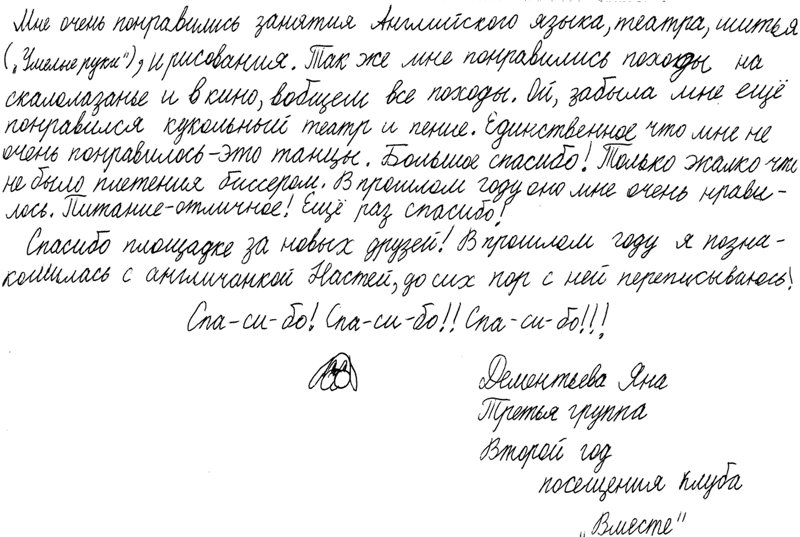 Мне очень понравились занятия Английского языка, театра, шитья
("Умелые руки"), и рисования. Так же мне понравились походы на
скалолазанье и в кино, вобщем все походы. Ой, забыла мне ещё
понравился кукольный театр и пение. Единственное что мне не
очень понравилось-это танцы. Большое спасибо! Только жалко что
не было плетения биссером. В прошлом году оно мне очень нрави-
лось. Питание-отличное! Ещё раз спасибо!
Спасибо площадке за новых друзей! В прошлом году я позна-
комилась с англичанкой Настей, до сих пор с ней переписываюсь!
Спа-си-бо! Спа-си-бо!! Спа-си-бо!!!
Дементьева Яна
Третья группа
Второй год
посещения клуба
"Вместе"